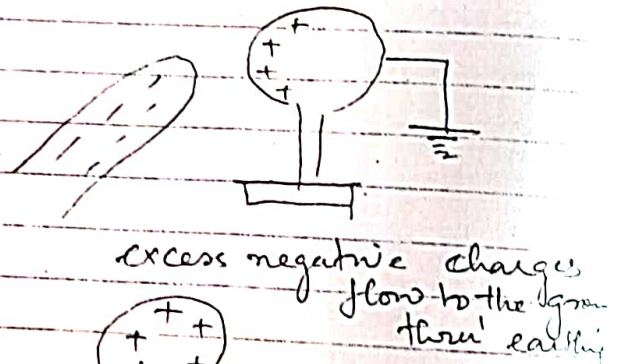 excess negative charges
flow to the
thru' earthing